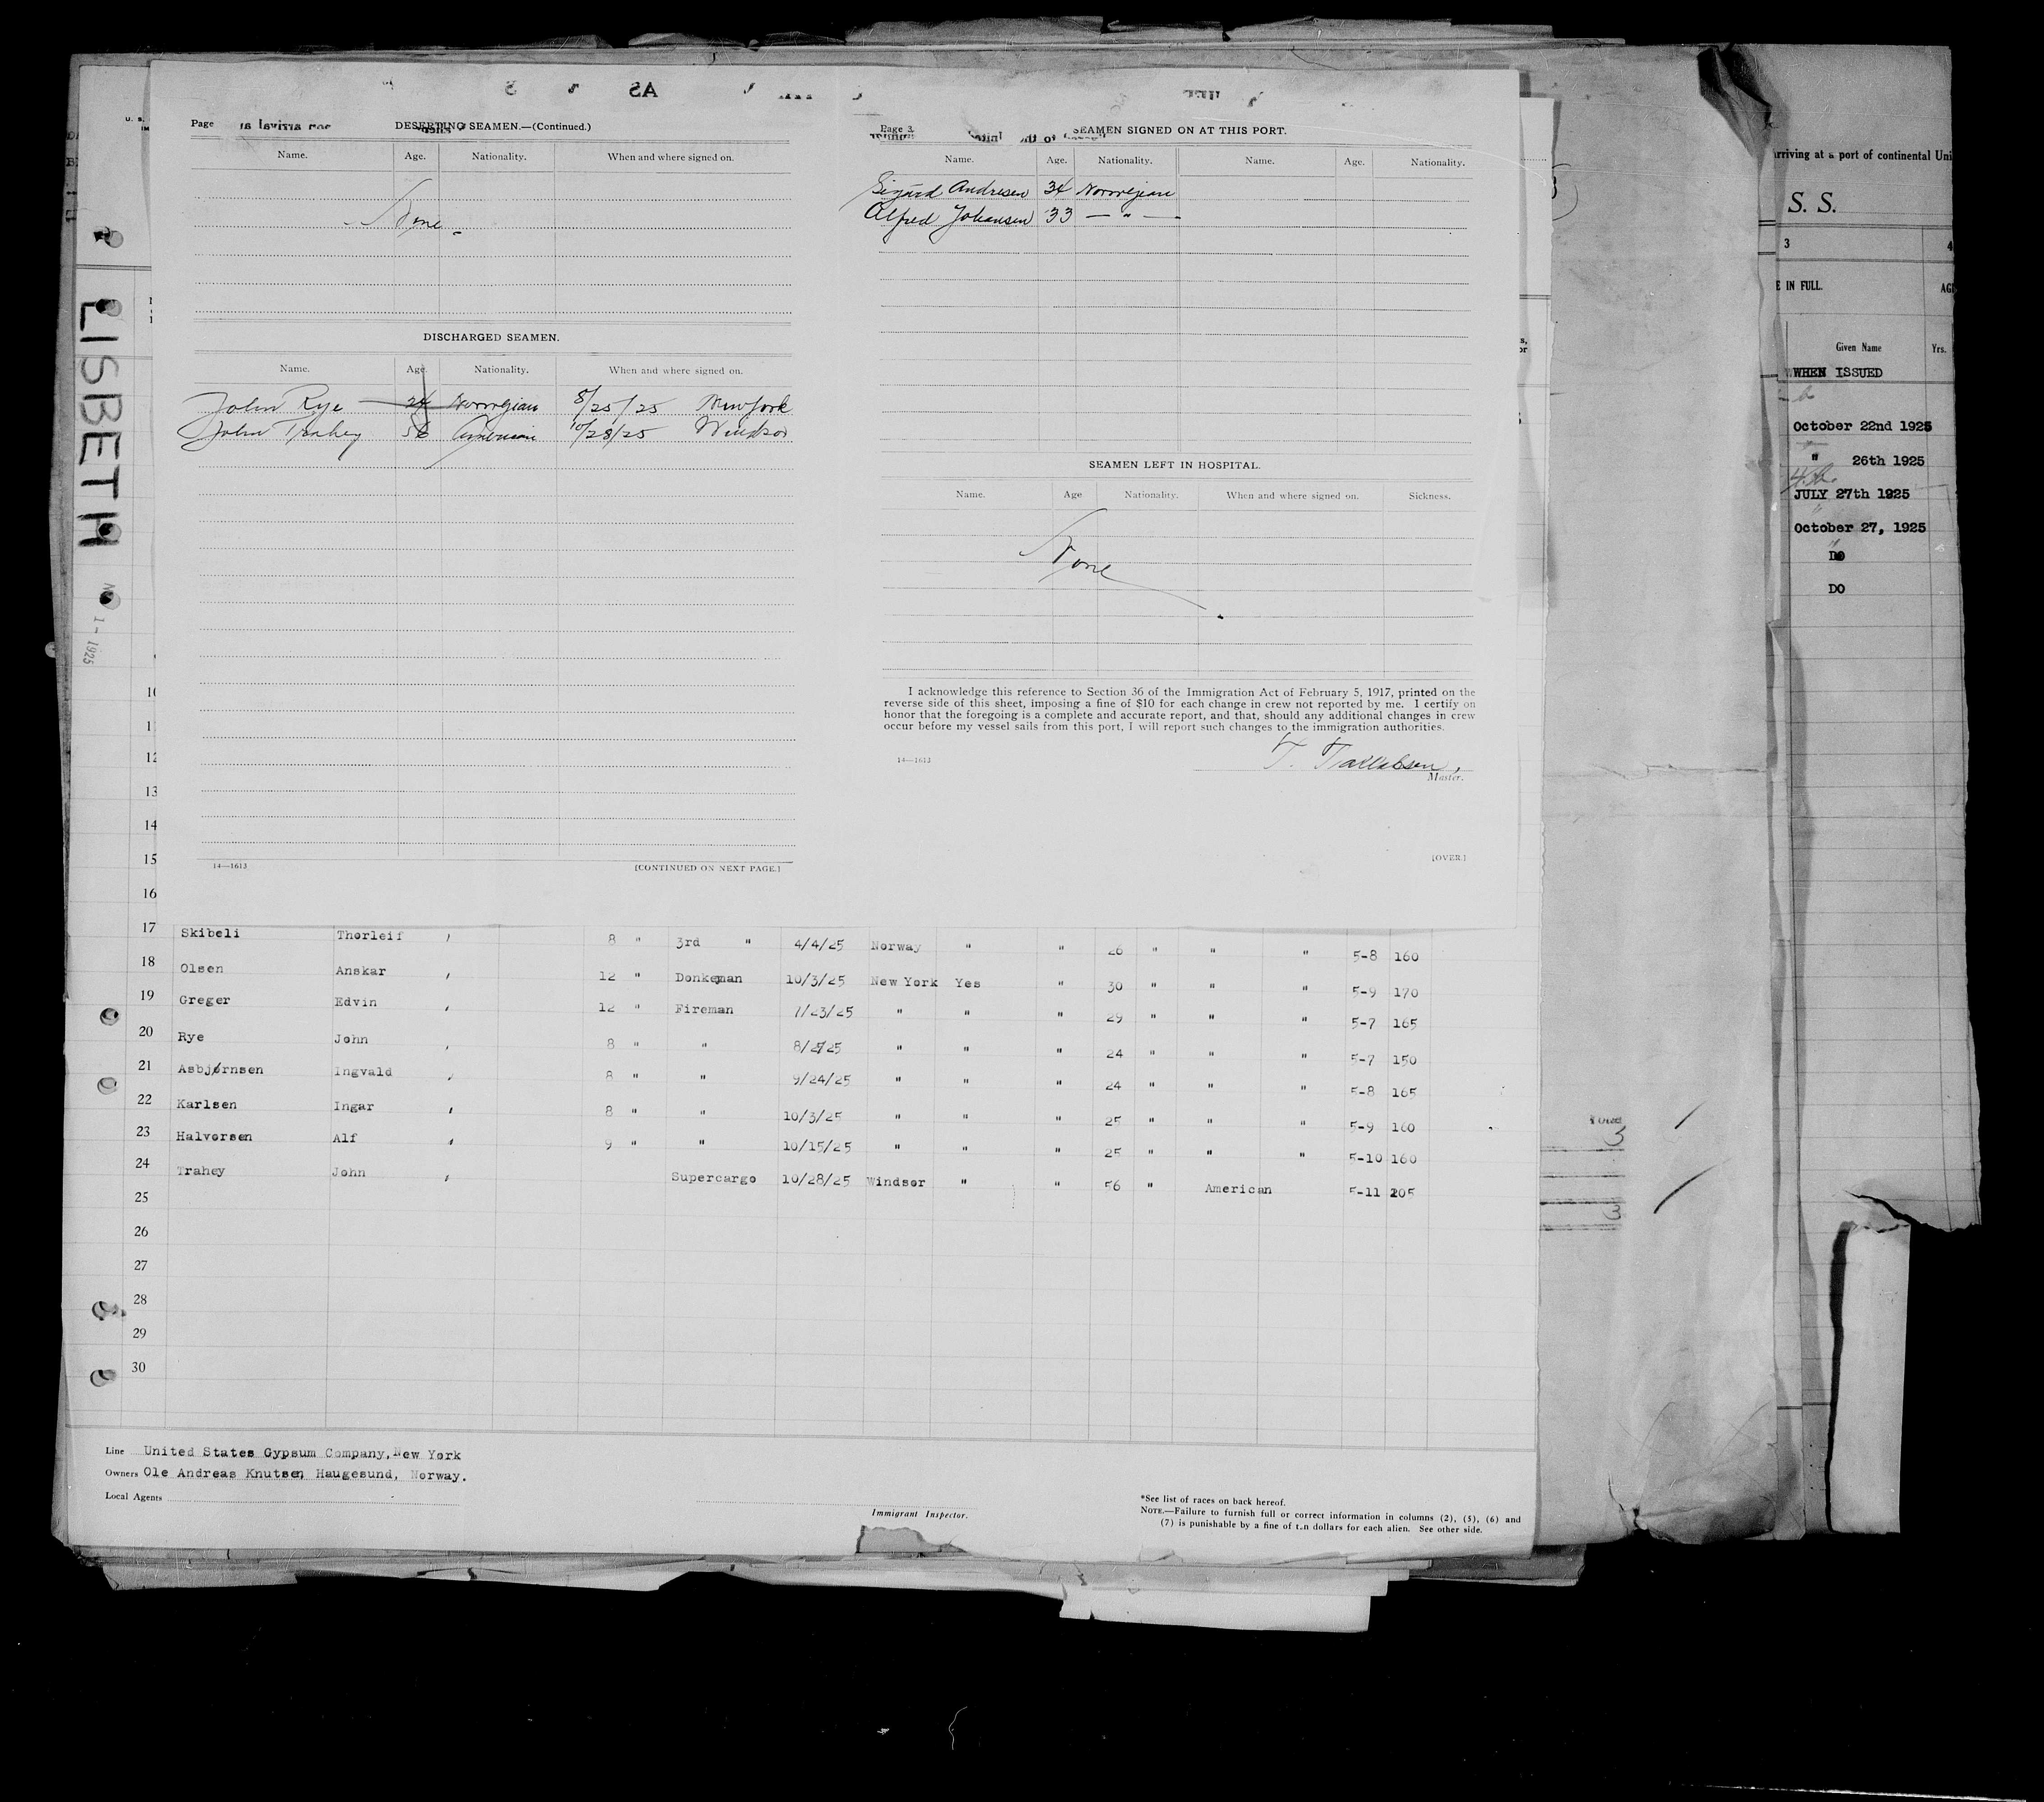 Page DESERTING SEAMEN.—(Continued.)
Name. Age. Nationality. When and where signed on.
None
DISCHARGED SEAMEN.
Name. Age. Nationality. When and where signed on.
John Rye 24 Norwegian 8/25/25 New York
John Trahey 56 American 10/28/25 Windsor
14—1613 [CONTINUED ON NEXT PAGE.]
Page 3 SEAMEN SIGNED ON AT THIS PORT.
Name. Age. Nationality. Name. Age. Nationality.
Sigurd Andresen 34 Norwegian
Alfred Johansen 33 — " —
SEAMEN LEFT IN HOSPITAL.
Name. Age Nationality. When and where signed on. Sickness.
None
I acknowledge this reference to Section 36 of the Immigration Act of February 5, 1917, printed on the
reverse side of this sheet, imposing a fine of $10 for each change in crew not reported by me. I certify on
honor that the foregoing is a complete and accurate report, and that, should any additional changes in crew
occur before my vessel sails from this port, I will report such changes to the immigration authorities.
14—1613
Master.
[OVER.]
LISBETH
1 - 1925
11
12
13
14
15
16
17 Skibeli Thorleif 8 " 3rd " 4/4/25 Norway " " 26 " " " 5-8 160
18 Olsen Anskar 12 " Donkeyman 10/3/25 New York Yes " 30 " " " 5-9 170
19 Greger Edvin 12 " Fireman 1/23/25 " " " 29 " " " 5-7 165
20 Rye John 8 " " 8/25 " " " 24 " " " 5-7 150
21 Asbjørnsen Ingvald 8 " " 9/24/25 " " " 24 " " " 5-8 165
22 Karlsen Ingar 8 " " 10/3/25 " " " 25 " " " 5-9 160
23 Halvorsen Alf 9 " " 10/15/25 " " " 25 " " " 5-10 160
24 Trahey John Supercargo 10/28/25 Windsor " " 56 " American 5-11 205
25
26
27
28
29
30
Line United States Gypsum Company, New York
Owners Ole Andreas Knutsen, Haugesund, Norway.
Local Agents
Immigrant Inspector.
*See list of races on back hereof.
NOTE.—Failure to furnish full or correct information in columns (2), (5), (6) and
(7) is punishable by a fine of ten dollars for each alien. See other side.
arriving at a port of continental Uni
S. S.
3 4
E IN FULL. AG
Given Name Yrs.
WHEN ISSUED
October 22nd 1925
" 26th 1925
JULY 27th 1925
October 27, 1925
DO
DO
3
3